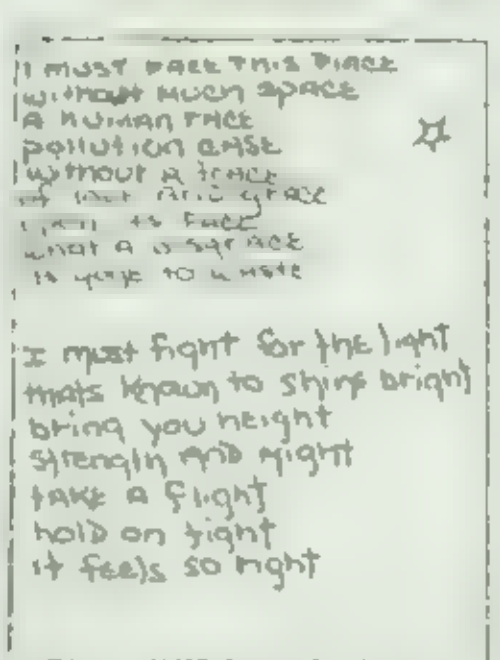 I MUST FACE THIS PLACE
without MUCH SPACE
A HUMAN FACE
POllUTION CASE
WITHOUT A TRACE
OF AND GRACE
TO FACE
WHAT A
IS TO WASTE
I must fight for the light
thats known to shine bright
bring you height
strength AND might
take a flight
hold on tight
it feels so right